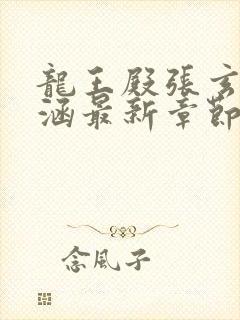 龍王殿張玄
涵最新章節
念風子